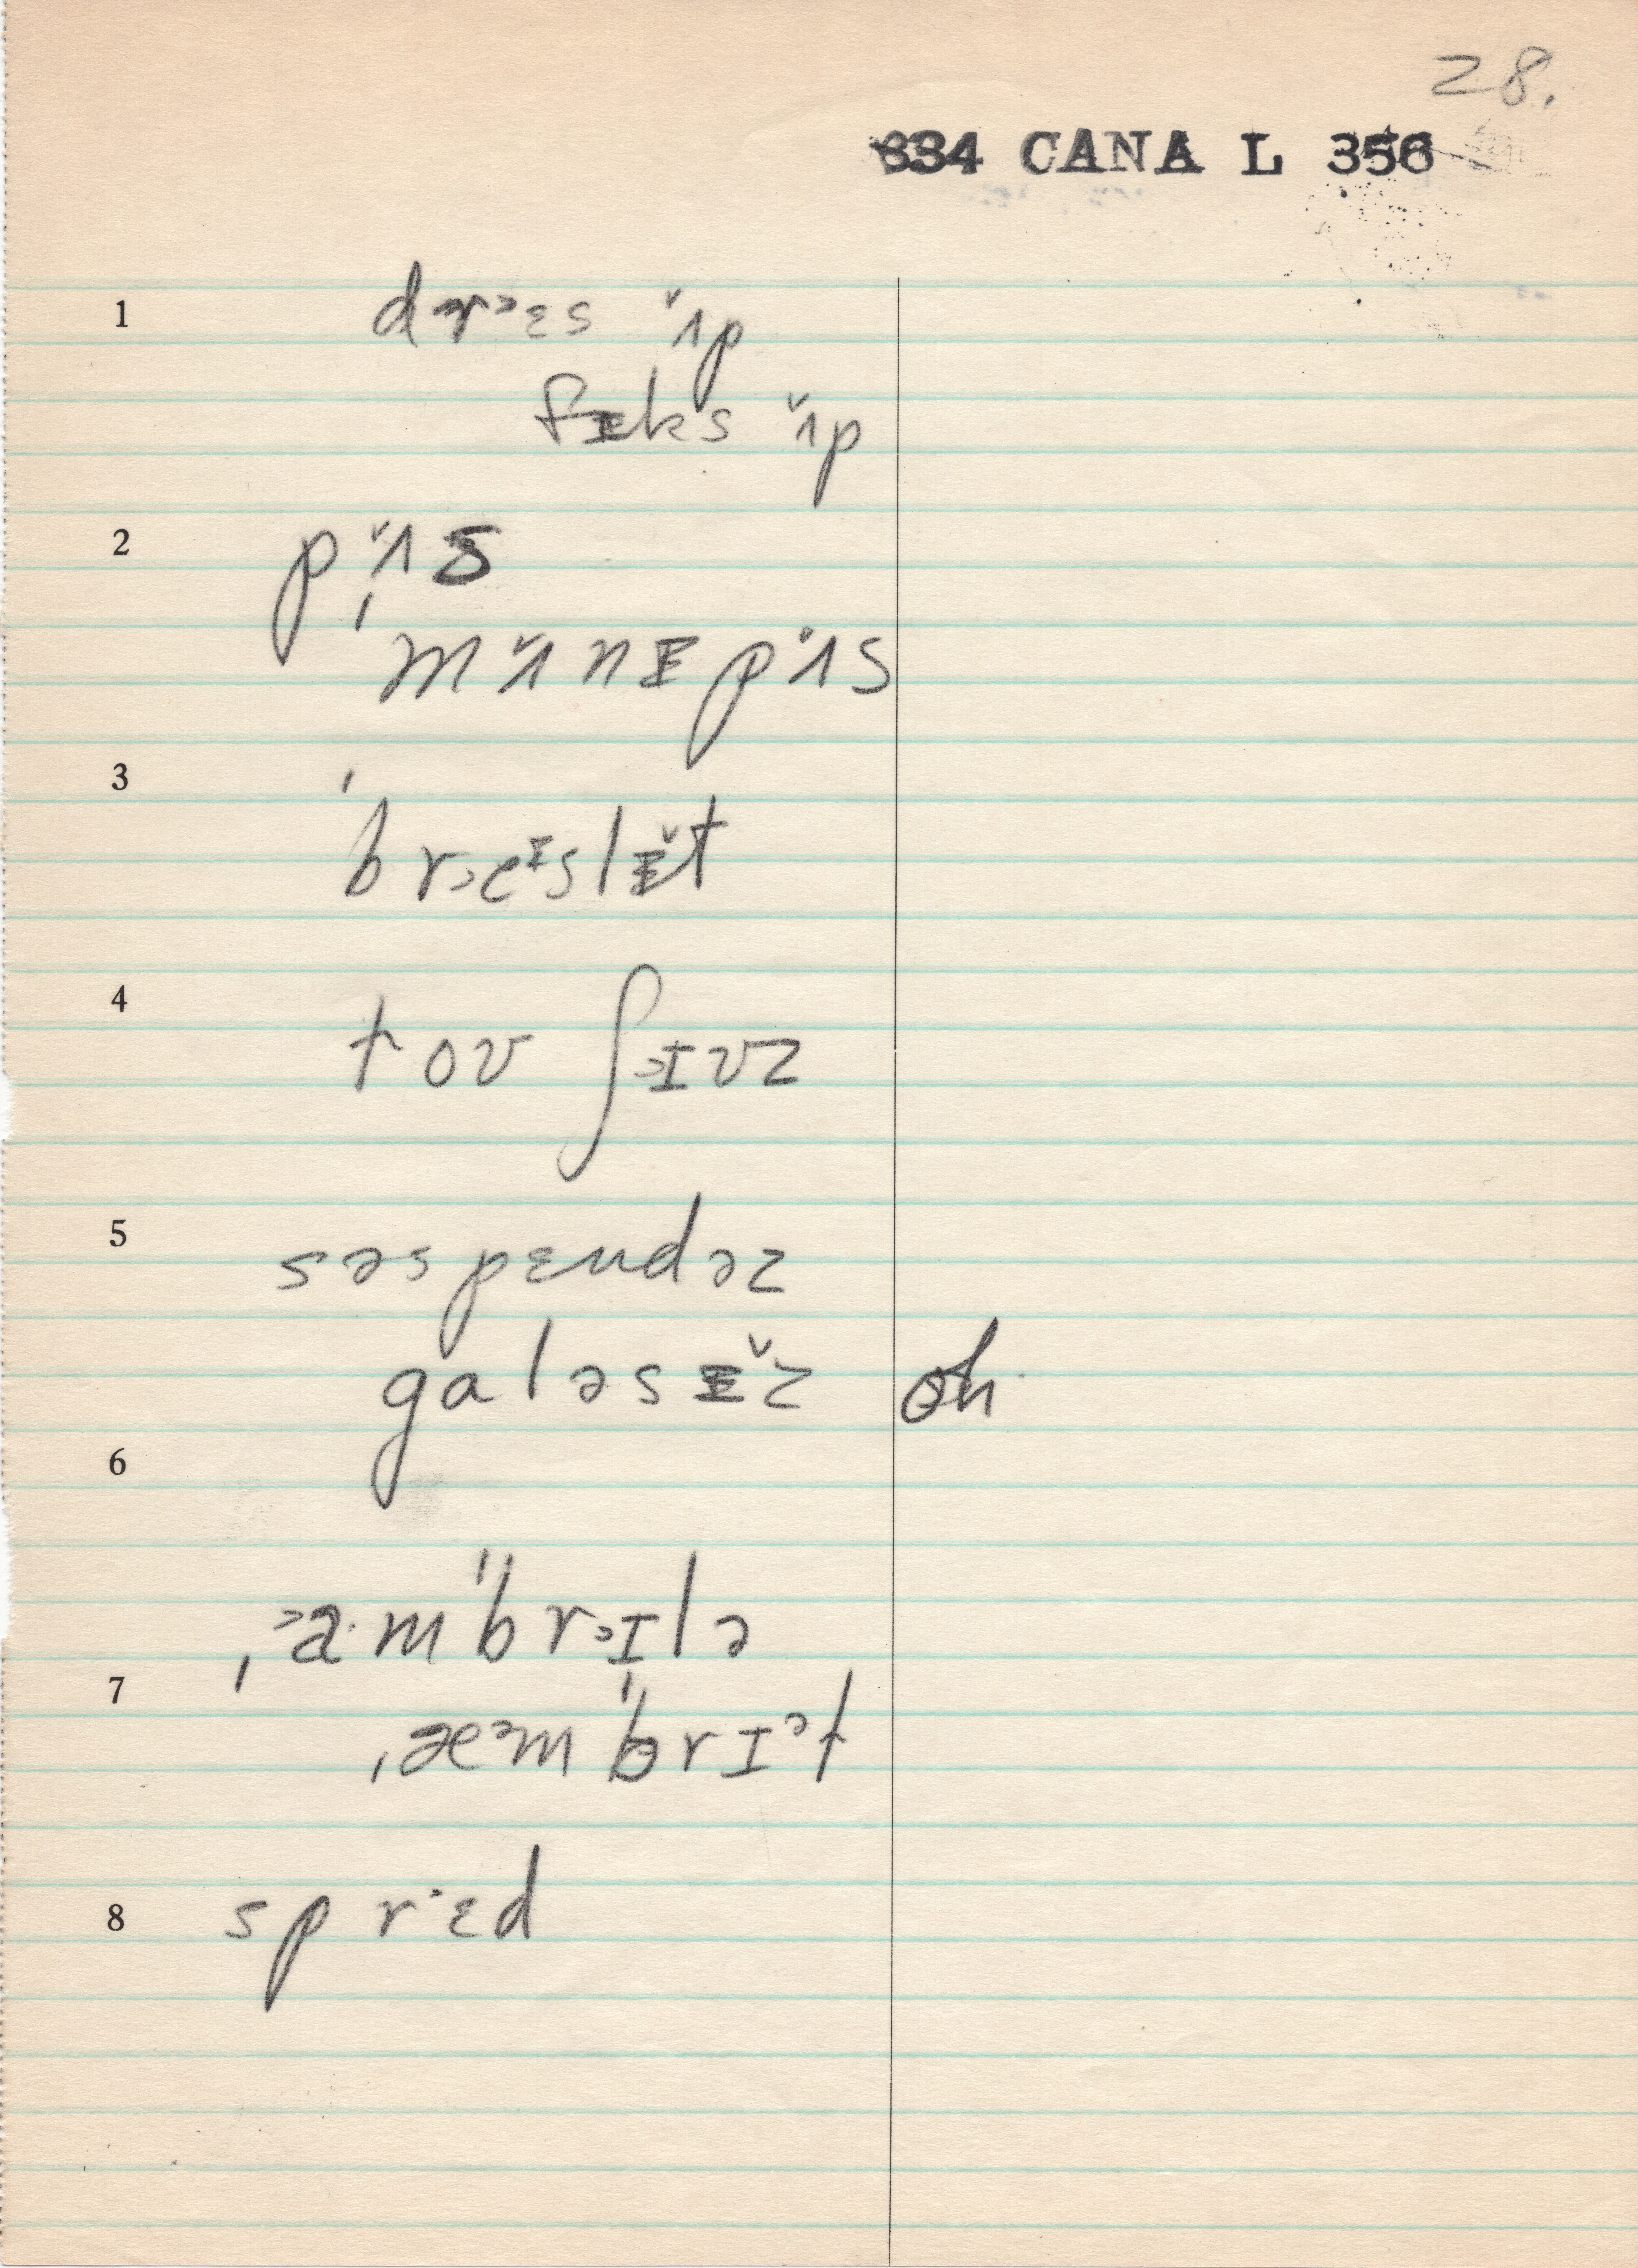 28.
334 CANA L 356
1 drᵊɛs ʌ̌p
fɪks ʌ̌p
2 pʌ̌s
ˌmʌ̌nɪpʌ̌s
3 ˈbrᵊeᶦslɪ̌t
4 tou ʃᵊɪuz
5 səspɛndəz
galəsɪ̌z oh
6
ˌᵊa·mˈbrᵊɪlə
7
ˌæᵊmˈbrɪᵊl
8 sprˑɛd